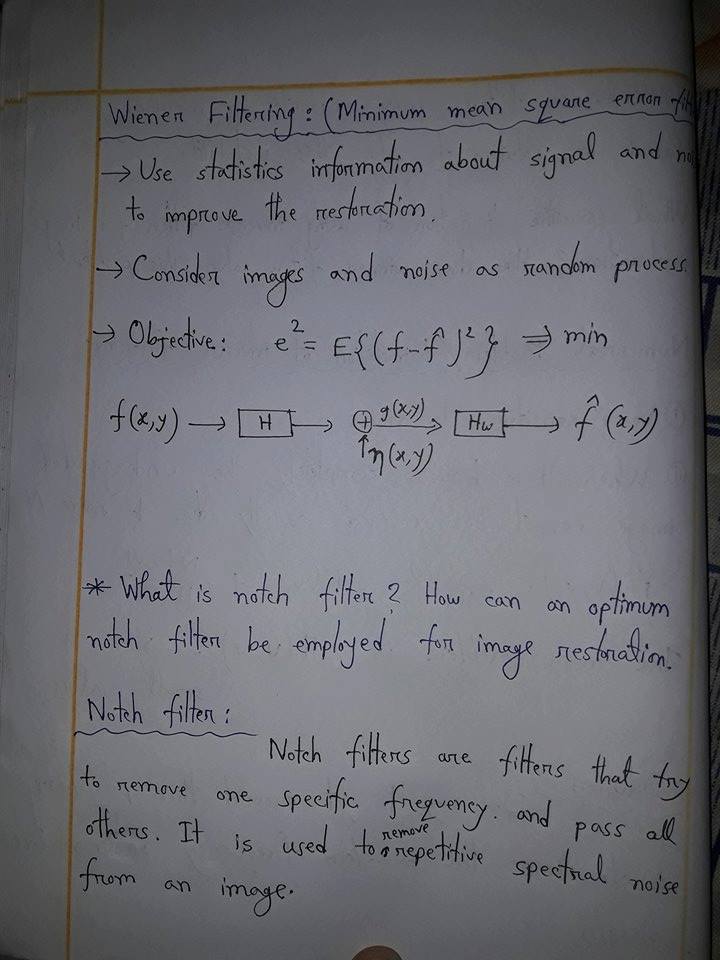 Wiener Filtering: (Minimum mean square error
→ Use statistics information about signal and
to improve the restoration.
→ Consider images and noise as random process.
→ Objective: e² = E{(f-f̂)²} ⇒ min
f(x,y) → H → ⊕ g(x,y) → Hw → f̂(x,y)
↑η(x,y)
* What is notch filter? How can an optimum
notch filter be employed for image restoration.
Notch filter:
Notch filters are filters that try
to remove one specific frequency. and pass all
others. It is used to remove repetitive spectral noise
from an image.